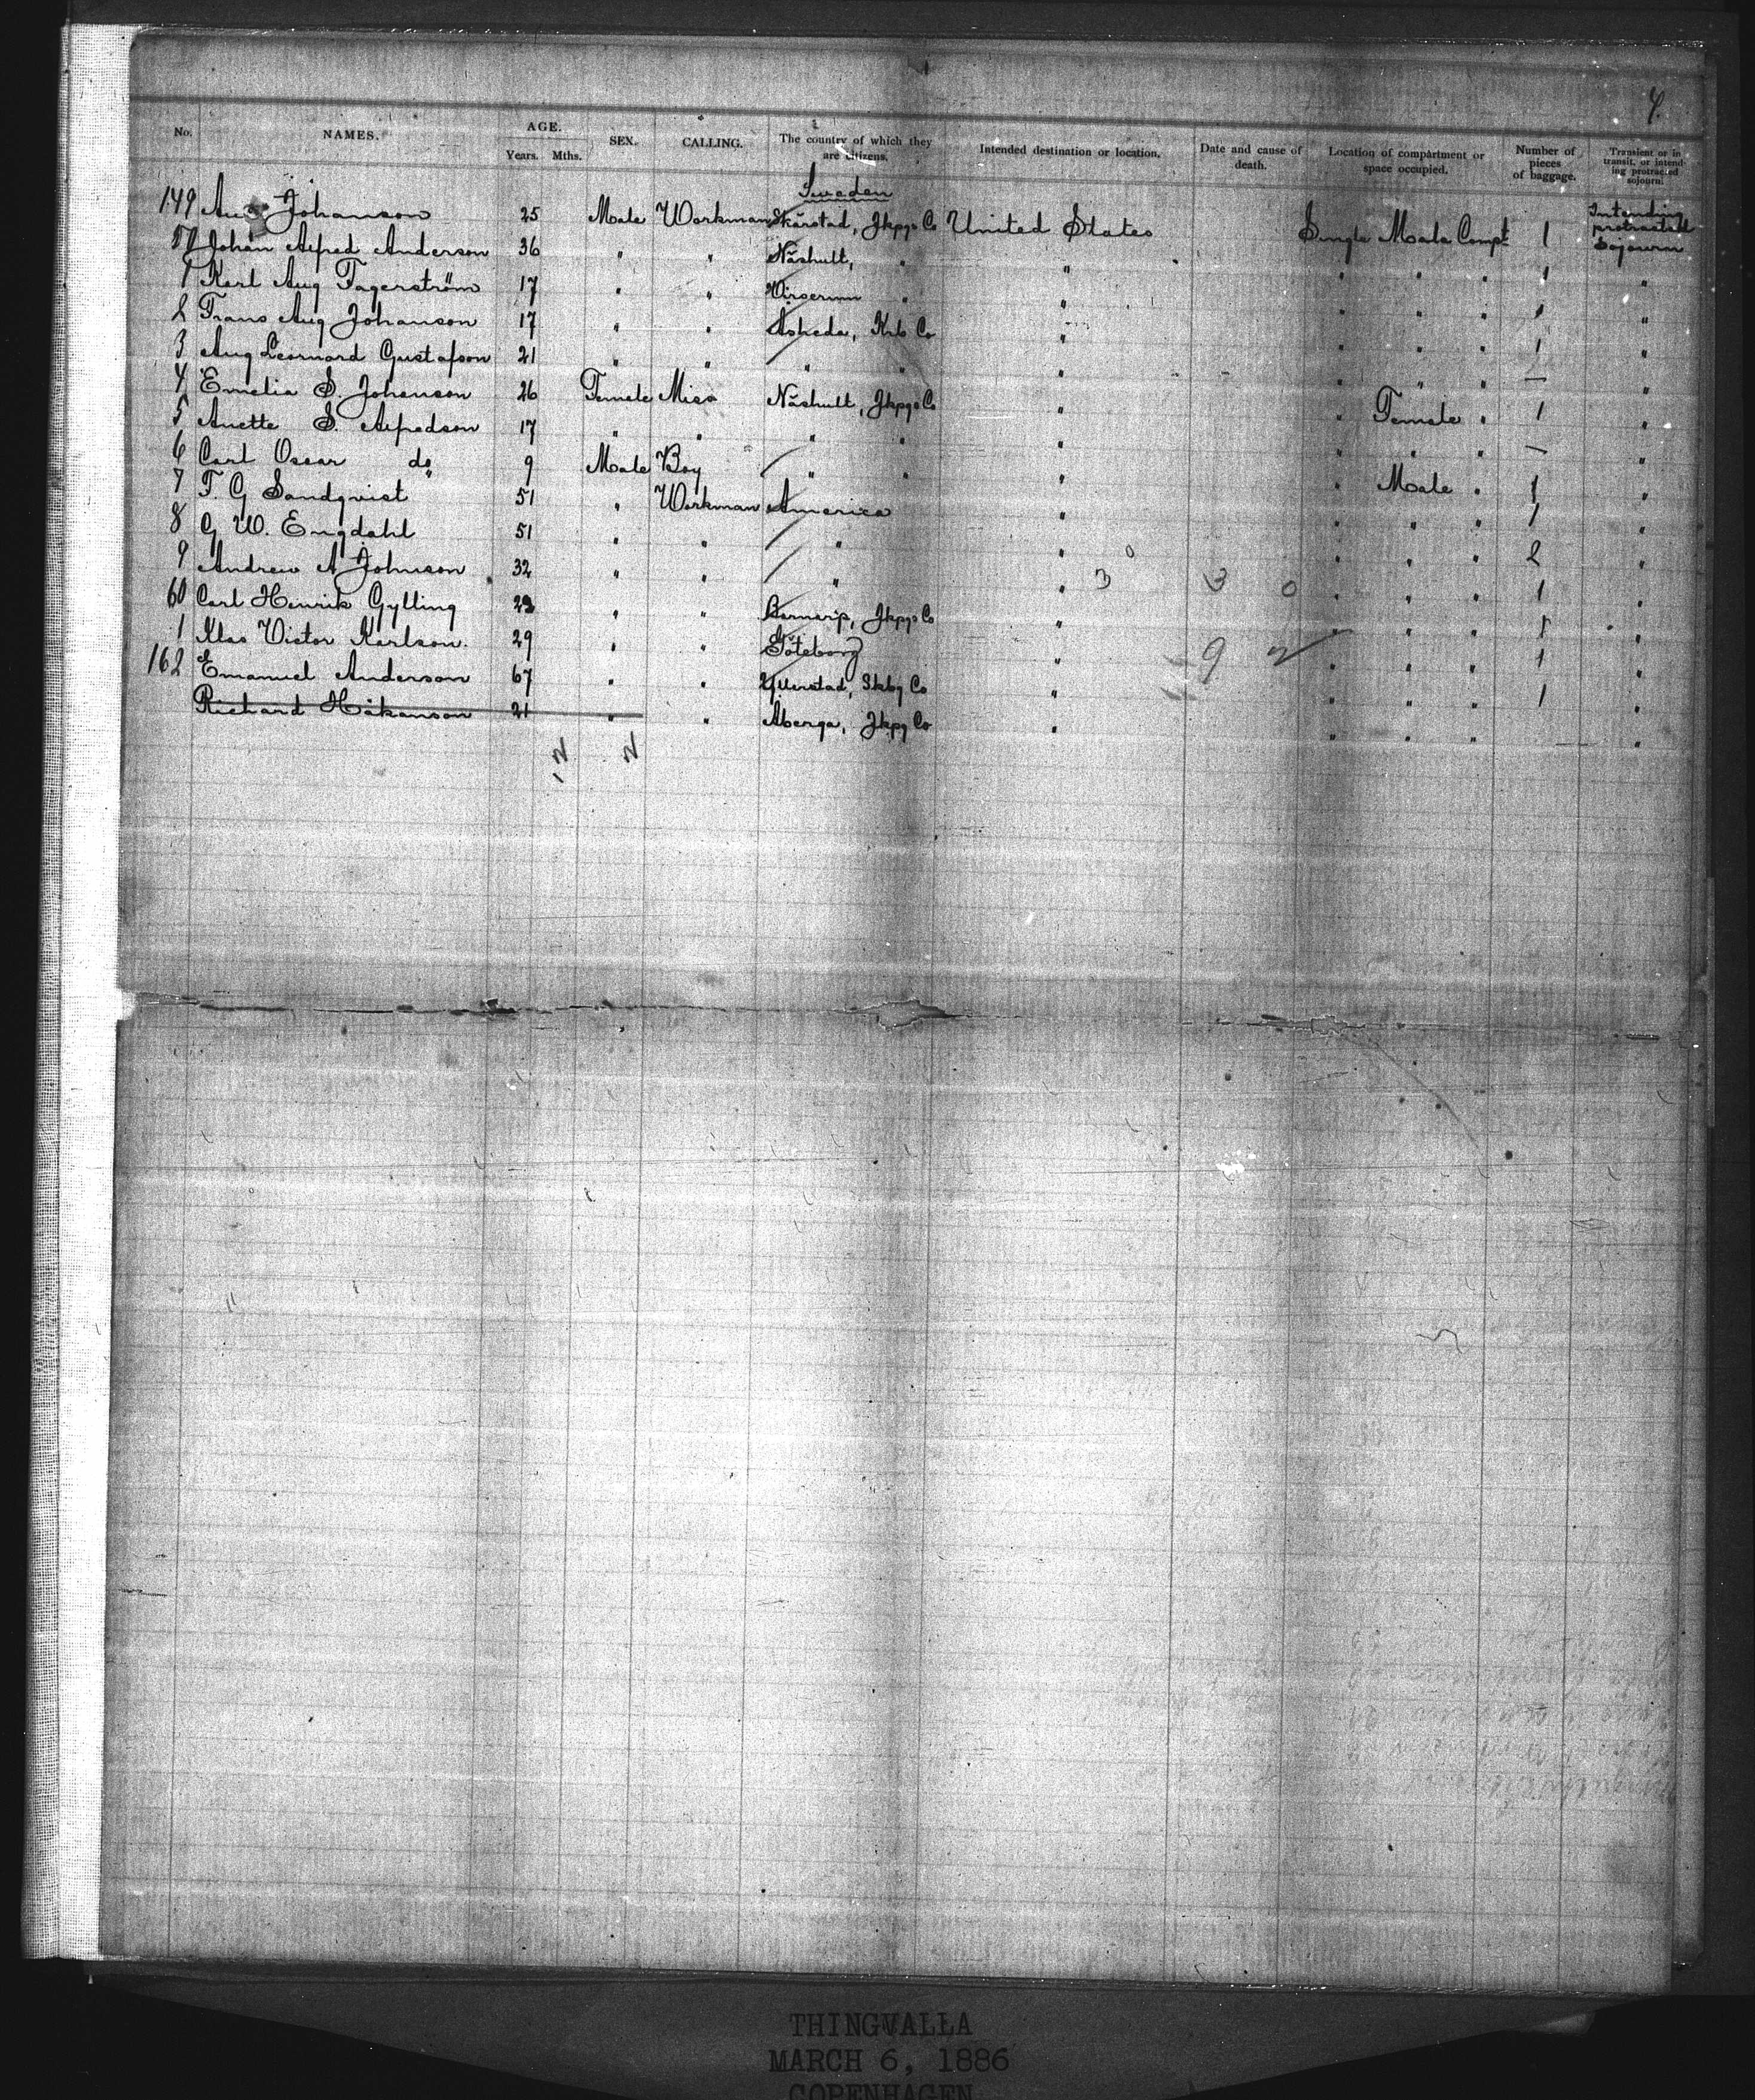 4.
No. NAMES. AGE. Years. Mths. SEX. CALLING. The country of which they are citizens. Intended destination or location. Date and cause of death. Location of compartment or space occupied. Number of pieces of baggage. Transient or in transit, or intending protracted sojourn.
Sweden
149 Aug Johanson 25 Male Workman Skärstad, Jkpgs Co United States Single Male Compt 1 Intending protracted Sojourn
50 Johan Alfred Anderson 36 " " Näshult, " " " " " 1 "
1 Karl Aug Fagerström 17 " " Virserum " " " " " 1 "
2 Frans Aug Johanson 17 " " Asheda, Krb Co " " " " 1 "
3 Aug Leonnard Gustafson 21 " " " " " " " " — "
4 Emelia S. Johanson 26 Female Miss Näshult, Jkpgs Co " " Female " 1 "
5 Anette S. Alfredson 17 " " " " " " " " — "
6 Carl Oscar do 9 Male Boy " " " " Male " 1 "
7 F. G Sandqvist 51 " Workman America " " " " 1 "
8 G W. Engdahl 51 " " " " " " " 2 "
9 Andrew A Johnson 32 " " " " 3 3 0 " " " 1 "
60 Carl Henrik Gylling 29 " " Barnarp, Jkpgs Co " " " " 1 "
1 Klas Victor Karlson. 29 " " Göteborg " 9 2 " " " 1 "
162 Emanuel Anderson 67 " " Co " " " " 1 "
Richard Håkanson 21 " " Aberga, Jkpg Co " " " " "
THINGVALLA
MARCH 6, 1886
COPENHAGEN